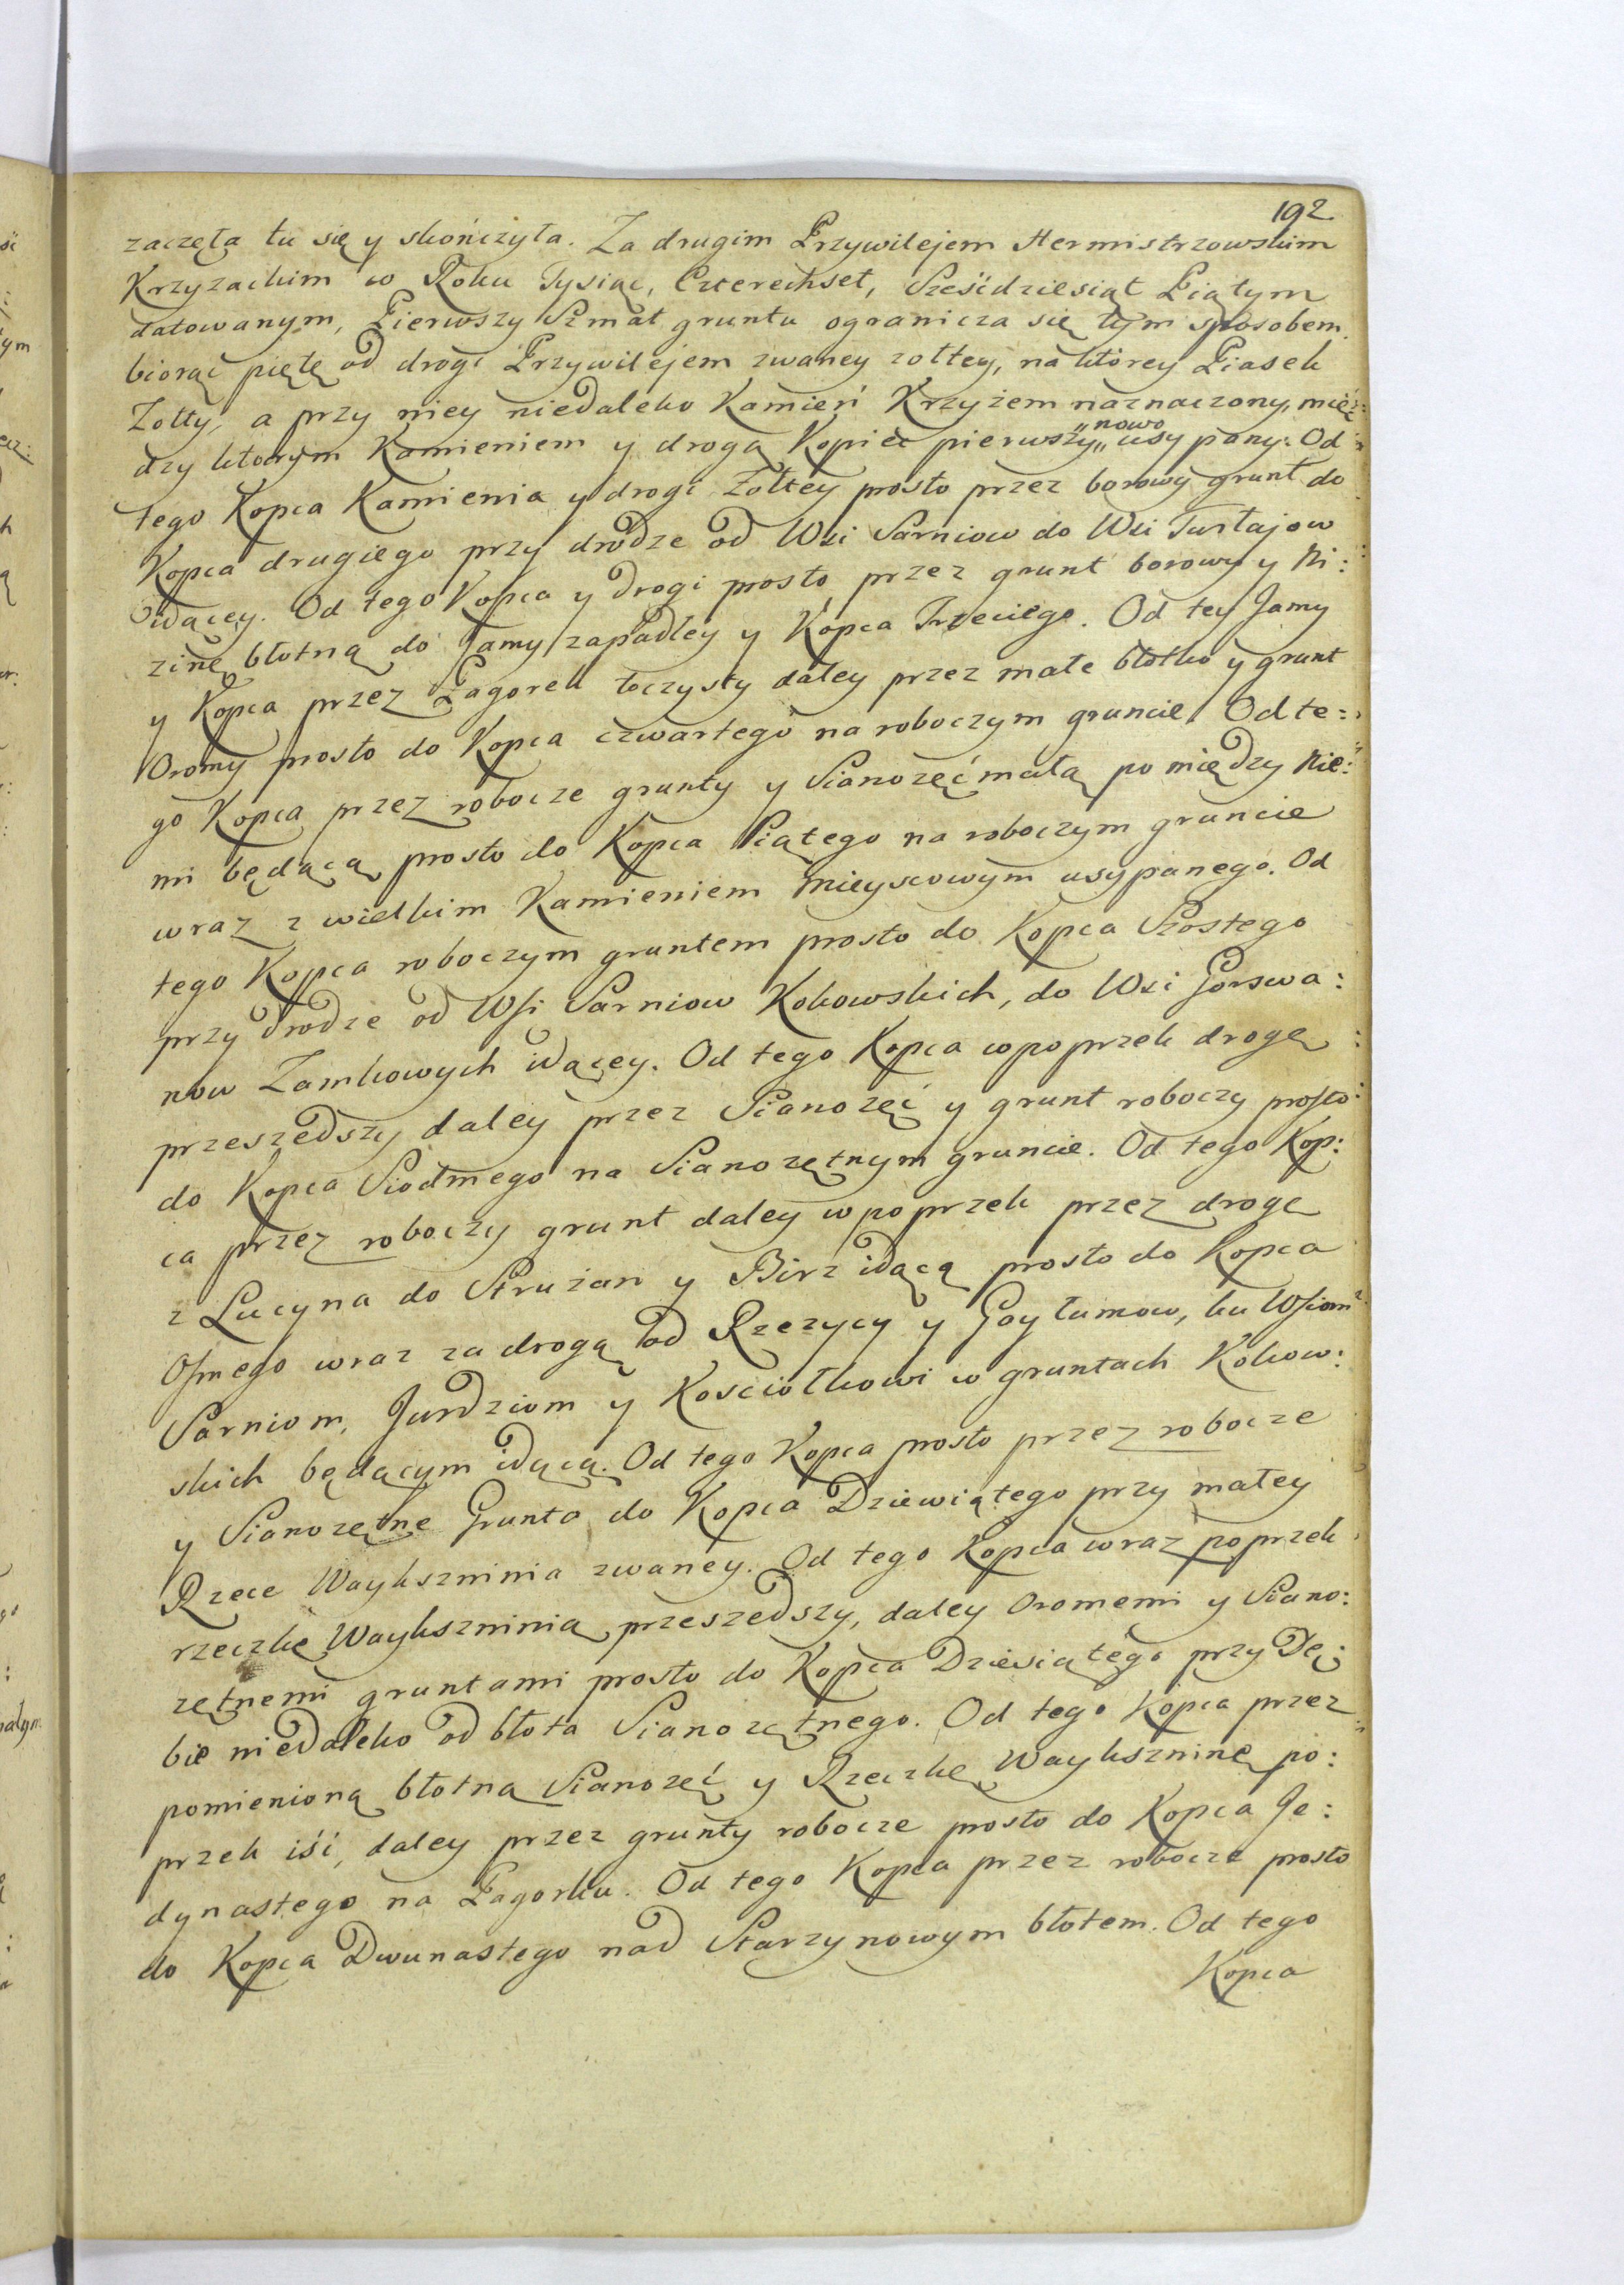 192
zaczęta tu się y skończyła. Za drugim Przywilejem Hermistrzowskim
Krzyzackim w Roku Tysiąc, Czterechset, Sześćdziesiąt Piątym
datowanym, Pierwszy Szmat gruntu ogranicza się tym sposobem.
biorąc piętę od drogi Przywilejem zwaney zołtey, na ktorey Piasek
Zołty, a przy niey niedaleko Kamień Krzyżem naznaczony, mię:
dzy ktorym Kamieniem y drogą Kopiec pierwszy „nowo„ usypany. Od
tego Kopca Kamienia y drogi Zołtey prosto przez borowy grunt do
Kopca drugiego przy drodze od Wsi Sarniow do Wsi Turłajow
idącey. Od tego Kopca y drogi prosto przez grunt borowy y Ni:
zinę błotną do Jamy zapadłey y Kopca Trzeciego. Od tey Jamy
y Kopca przez Pagorek łoczysty daley przez małe błotko y grunt
Oromy prosto do Kopca czwartego na roboczym gruncie. Od te:
go Kopca przez robocze grunty y Sianozęć małą pomiędzy Nie:
mi będącą prosto do Kopca Piątego na roboczym gruncie
wraz z wielkim Kamieniem mieyscowym usypanego. Od
tego Kopca roboczym gruntem prosto do Kopca Szostego
przy drodze od Wsi Sarniow Kokowskich, do Wsi Gorswa:
now Zamkowych idącey. Od tego Kopca wpoprzek drogę
przeszedszy daley przez Sianozęć y grunt roboczy prosto
do Kopca Siodmego na Sianozętnym gruncie. Od tego Kop:
ca przez roboczy grunt daley wpoprzek przez drogę
z Lucyna do Strużan y Birz idącą prosto do Kopca
Osmego wraz za drogą od Rzezycy y Goytumow, ku Wsiom
Sarniom, Jurdziom y Kosciołkowi w gruntach Kokow:
skich będącym idącą. Od tego Kopca prosto przez robocze
y Sianozętne Grunta do Kopca Dziewiątego przy małey
Rzece Waykszninia zwaney. Od tego Kopca wraz poprzek
rzeczkę Waykszninią przeszedszy, daley Oromemi y Siano:
zętnemi gruntami prosto do Kopca Dziesiątego przy Dę:
bie niedaleko od błota Sianozętnego. Od tego Kopca przez
pomienioną błotną Sianozęć y Rzeczkę Waykszninę po:
przek iść, daley przez grunty robocze prosto do Kopca Je:
dynastego na Pagorku. Od tego Kopca przez robocze prosto
do Kopca Dwunastego nad Starzynowym błotem. Od tego
Kopca